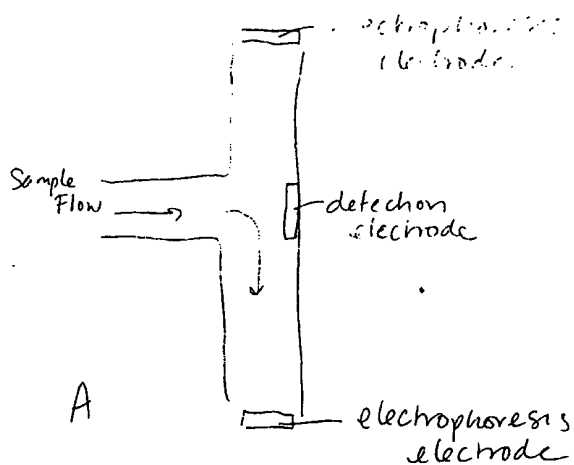 electrode
Sample
Flow
detection
electrode
A
electrophoresis
electrode